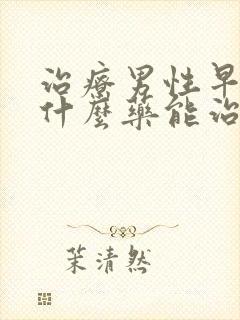 治療男性早
什麼藥能治
茉清然